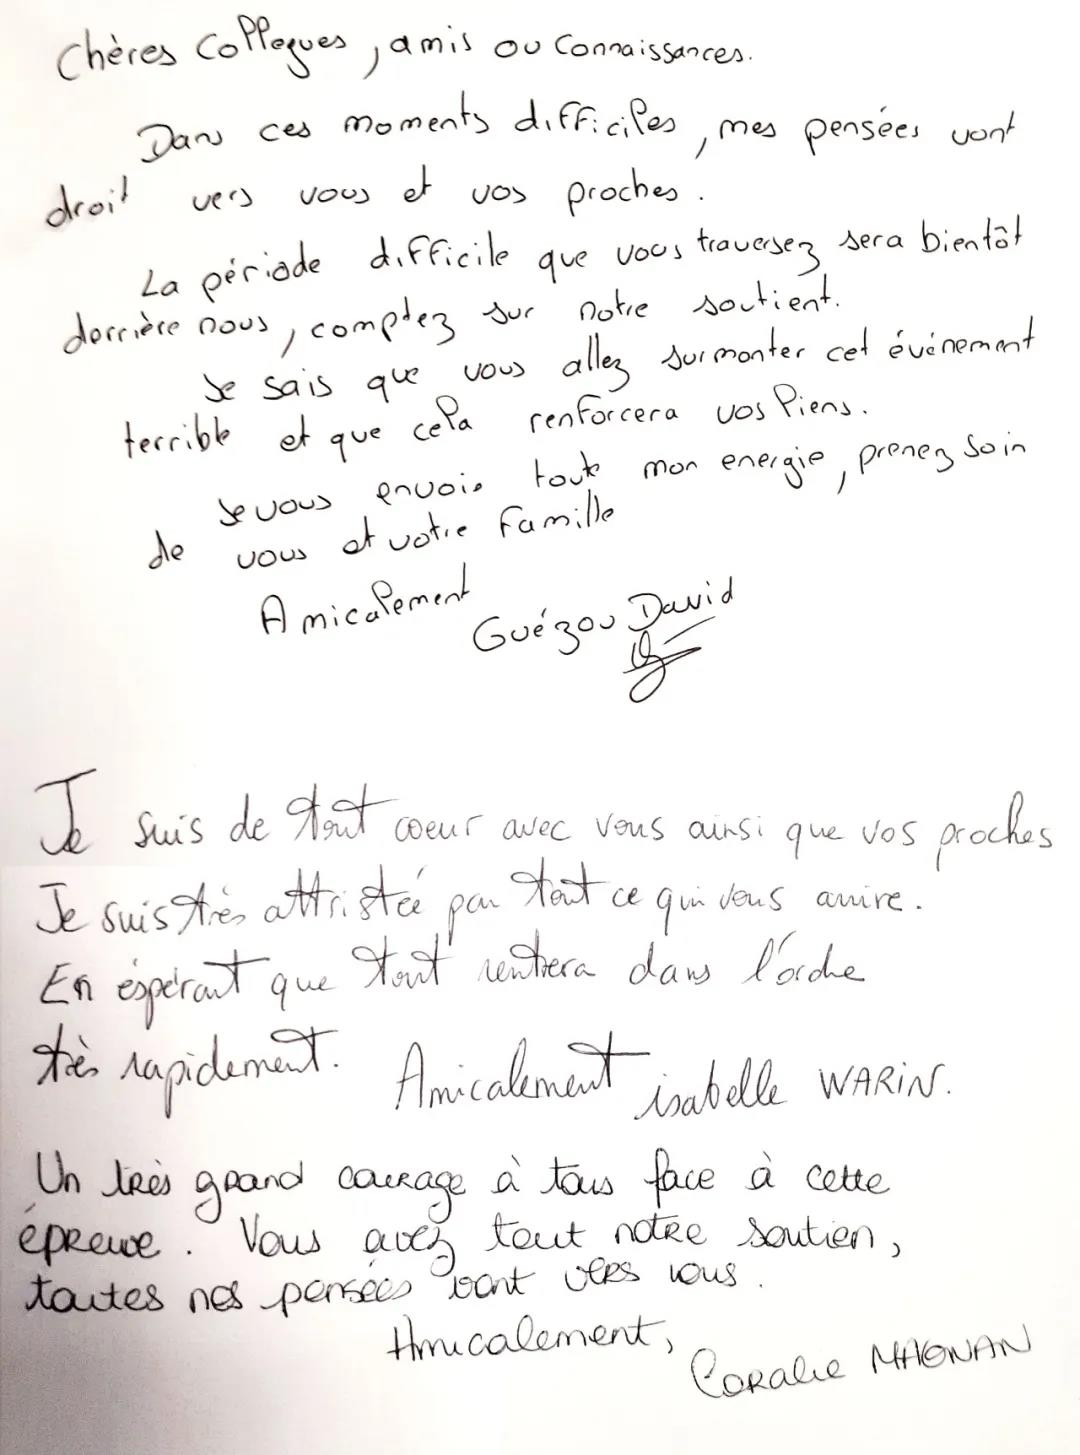 Chères Collegues, amis ou Connaissances.
Dans ces moments difficiles, mes pensées vont
droit vers vous et vos proches.
La période difficile que vous traversez sera bientôt
derrière nous, comptez sur notre soutient.
Je sais que vous allez surmonter cet événement
terrible et que cela renforcera vos liens.
Je vous envoie toute mon energie, prenez soin
de vous et votre famille
Amicalement
Guézou David
Je suis de tout coeur avec vous ainsi que vos proches
Je suis très attristée par tout ce qui vous arrive.
En éspérant que tout rentrera dans l'ordre
très rapidement. Amicalement isabelle WARIN.
Un très grand courage à tous face à cette
épreuve. Vous avez tout notre soutien,
toutes nos pensées vont vers vous.
Amicalement,
Coralie MAGNAN